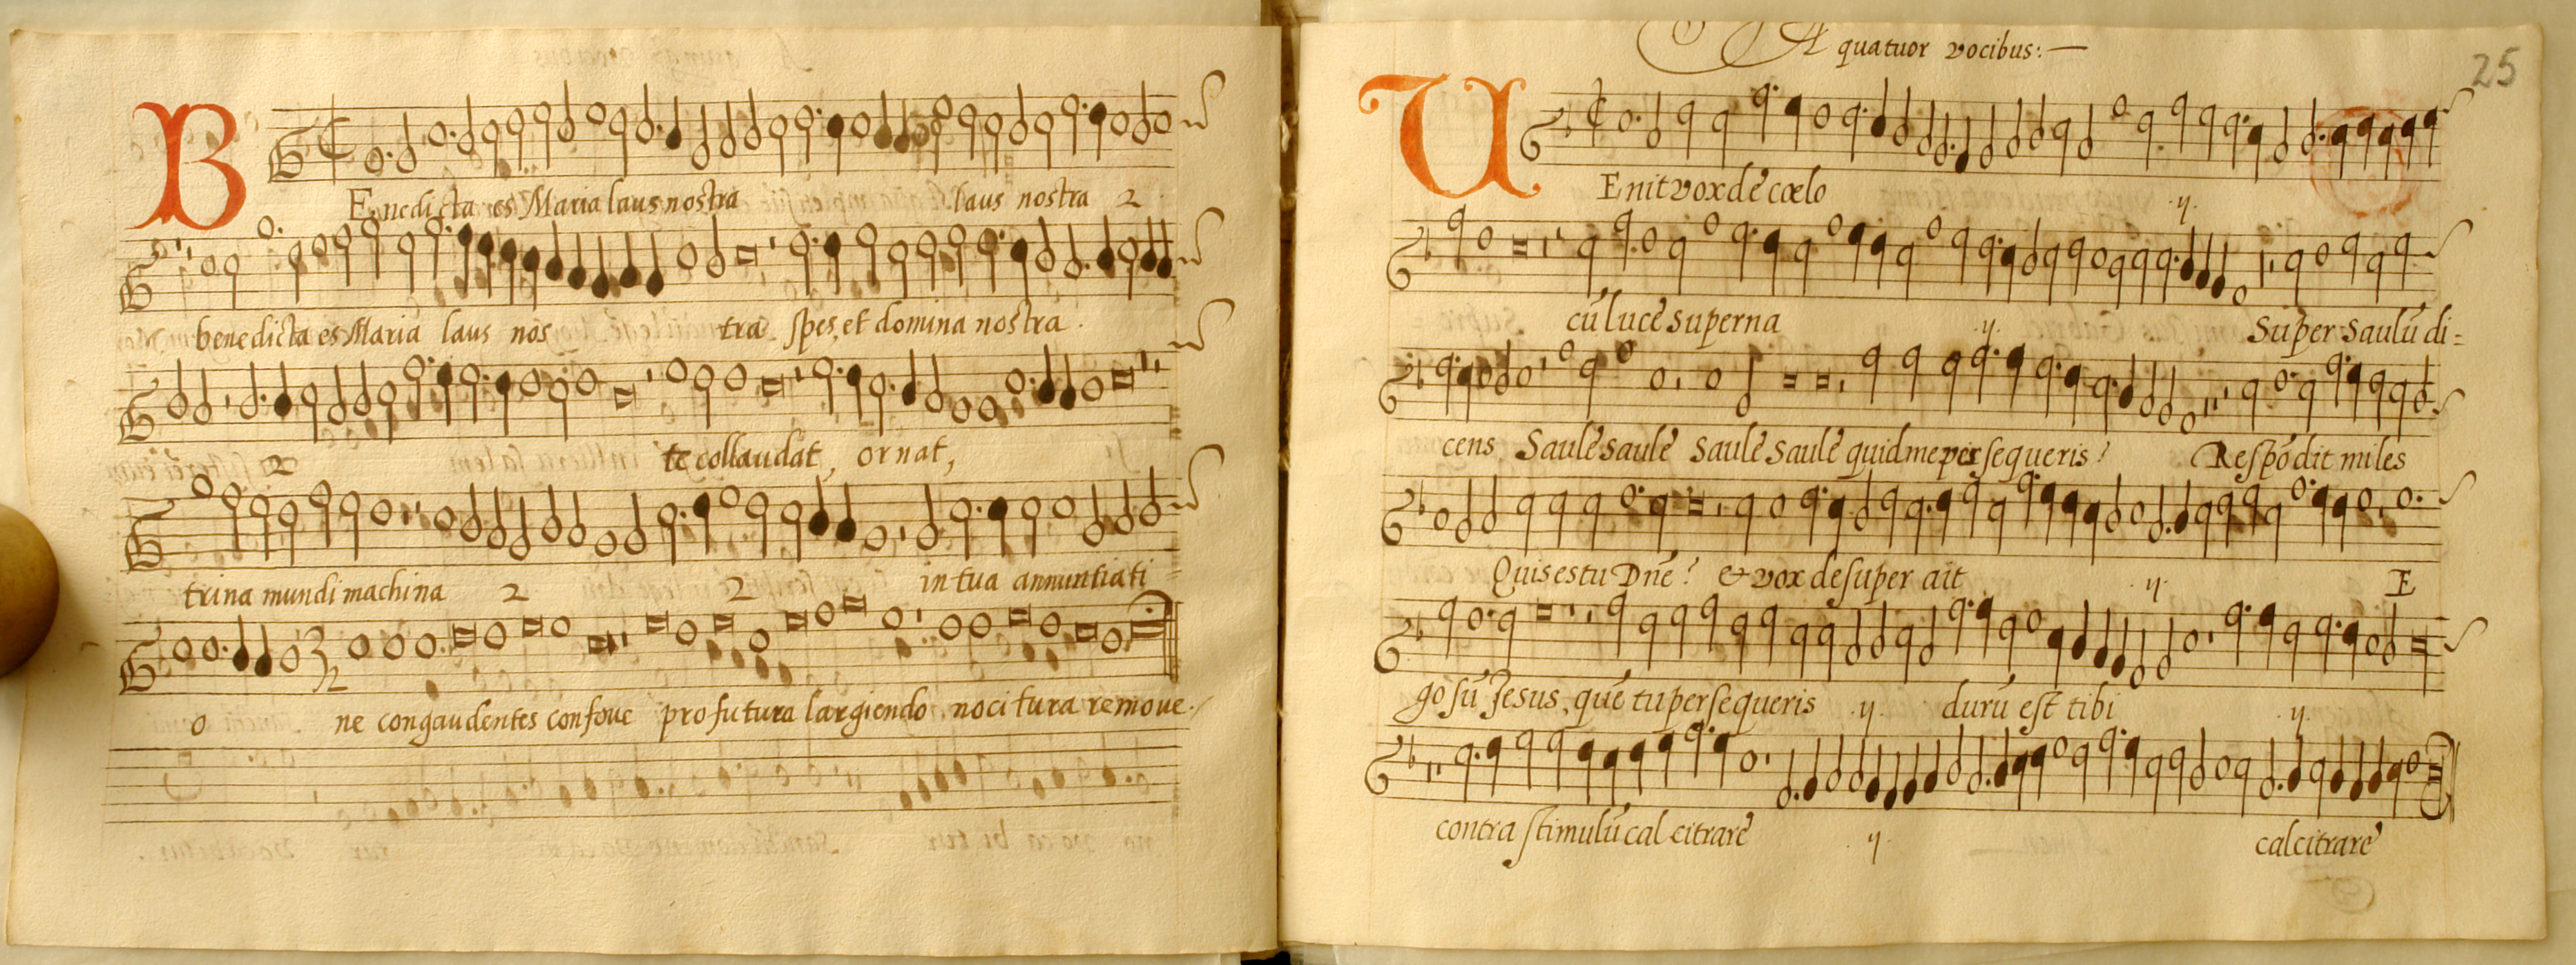 BEnedicta es Maria laus nostra laus nostra 2
benedicta es Maria laus nos tra spes, et domina nostra.
2 te collaudat, ornat,
trina mundi machina 2 2 in tua annuntiati=
o ne congaudentes confove profutura largiendo nocitura remove.
A quatuor vocibus:—
25
VEnit vox de cœlo .ij.
cū lucē superna .ij. Super Saulū di=
cens Saulē saulē Saulē Saulē quid me persequeris? Respōdit miles
Quis es tu Dnē? & vox desuper ait .ij. E
go sū Jesus, quē tu persequeris .ij. durū est tibi .ij.
contra stimulū calcitrarē .ij. calcitrarē